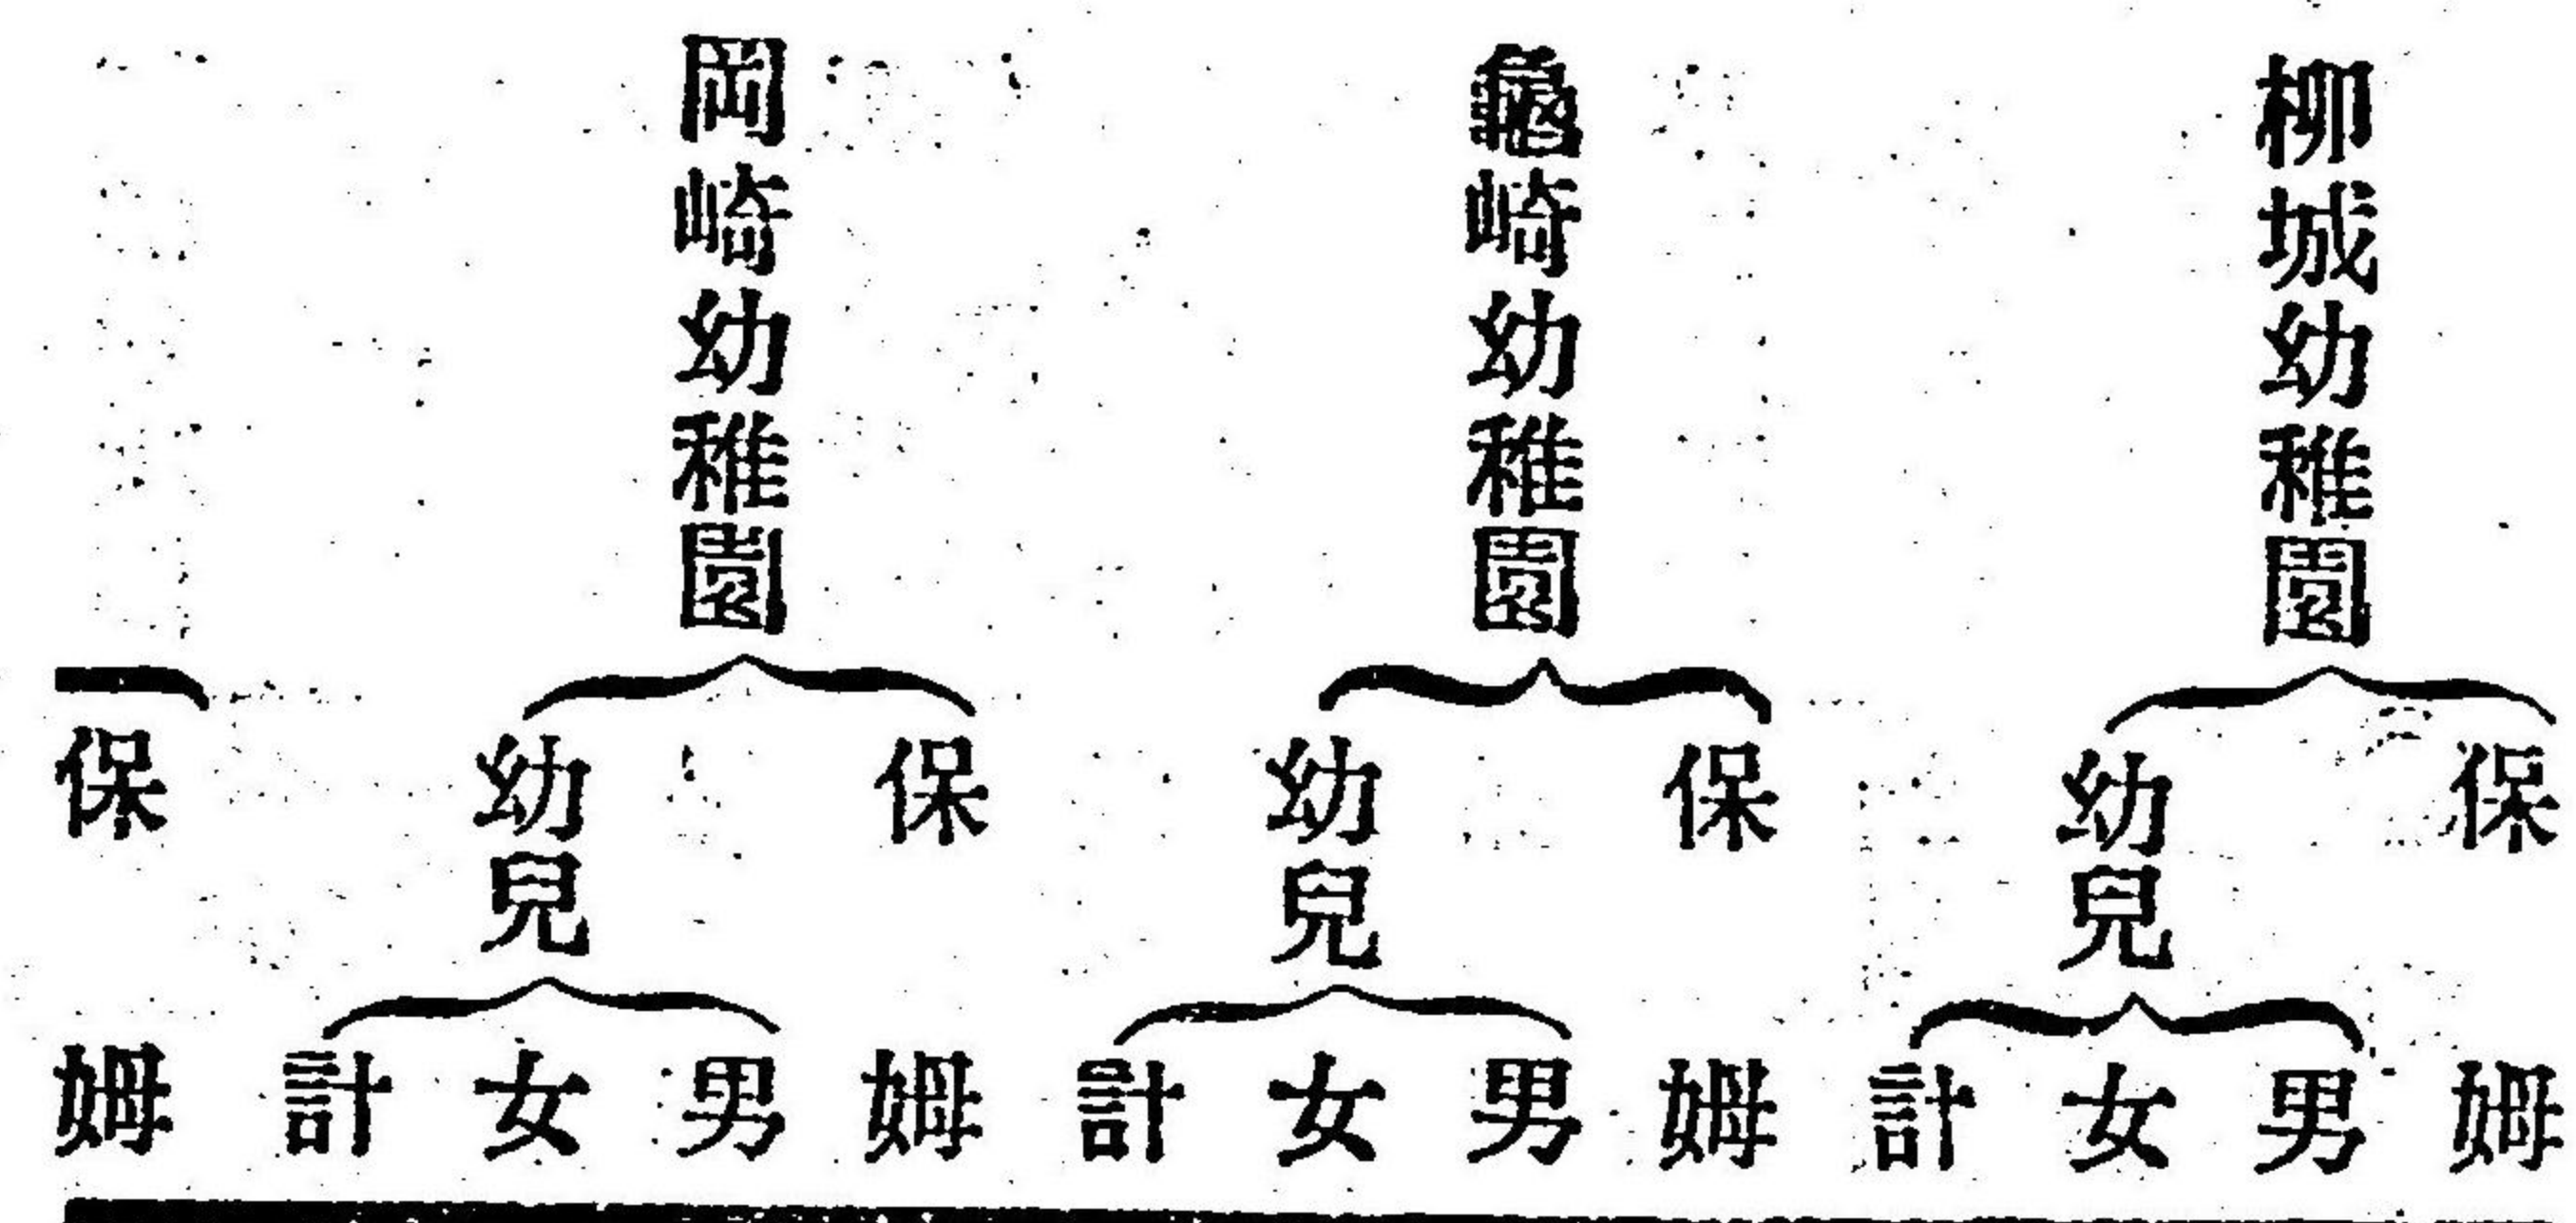 柳城幼稚園
保姆
幼兒
男
女
計
龜崎幼稚園
保姆
幼兒
男
女
計
岡崎幼稚園
保姆
幼兒
男
女
計
保姆